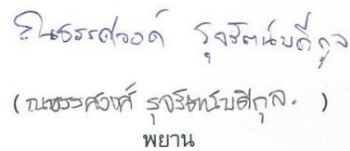 ณธรรศวงศ์ รุจรัตน์บดีกุล
(ณธรรศวงศ์ รุจรัตน์บดีกุล)
พยาน